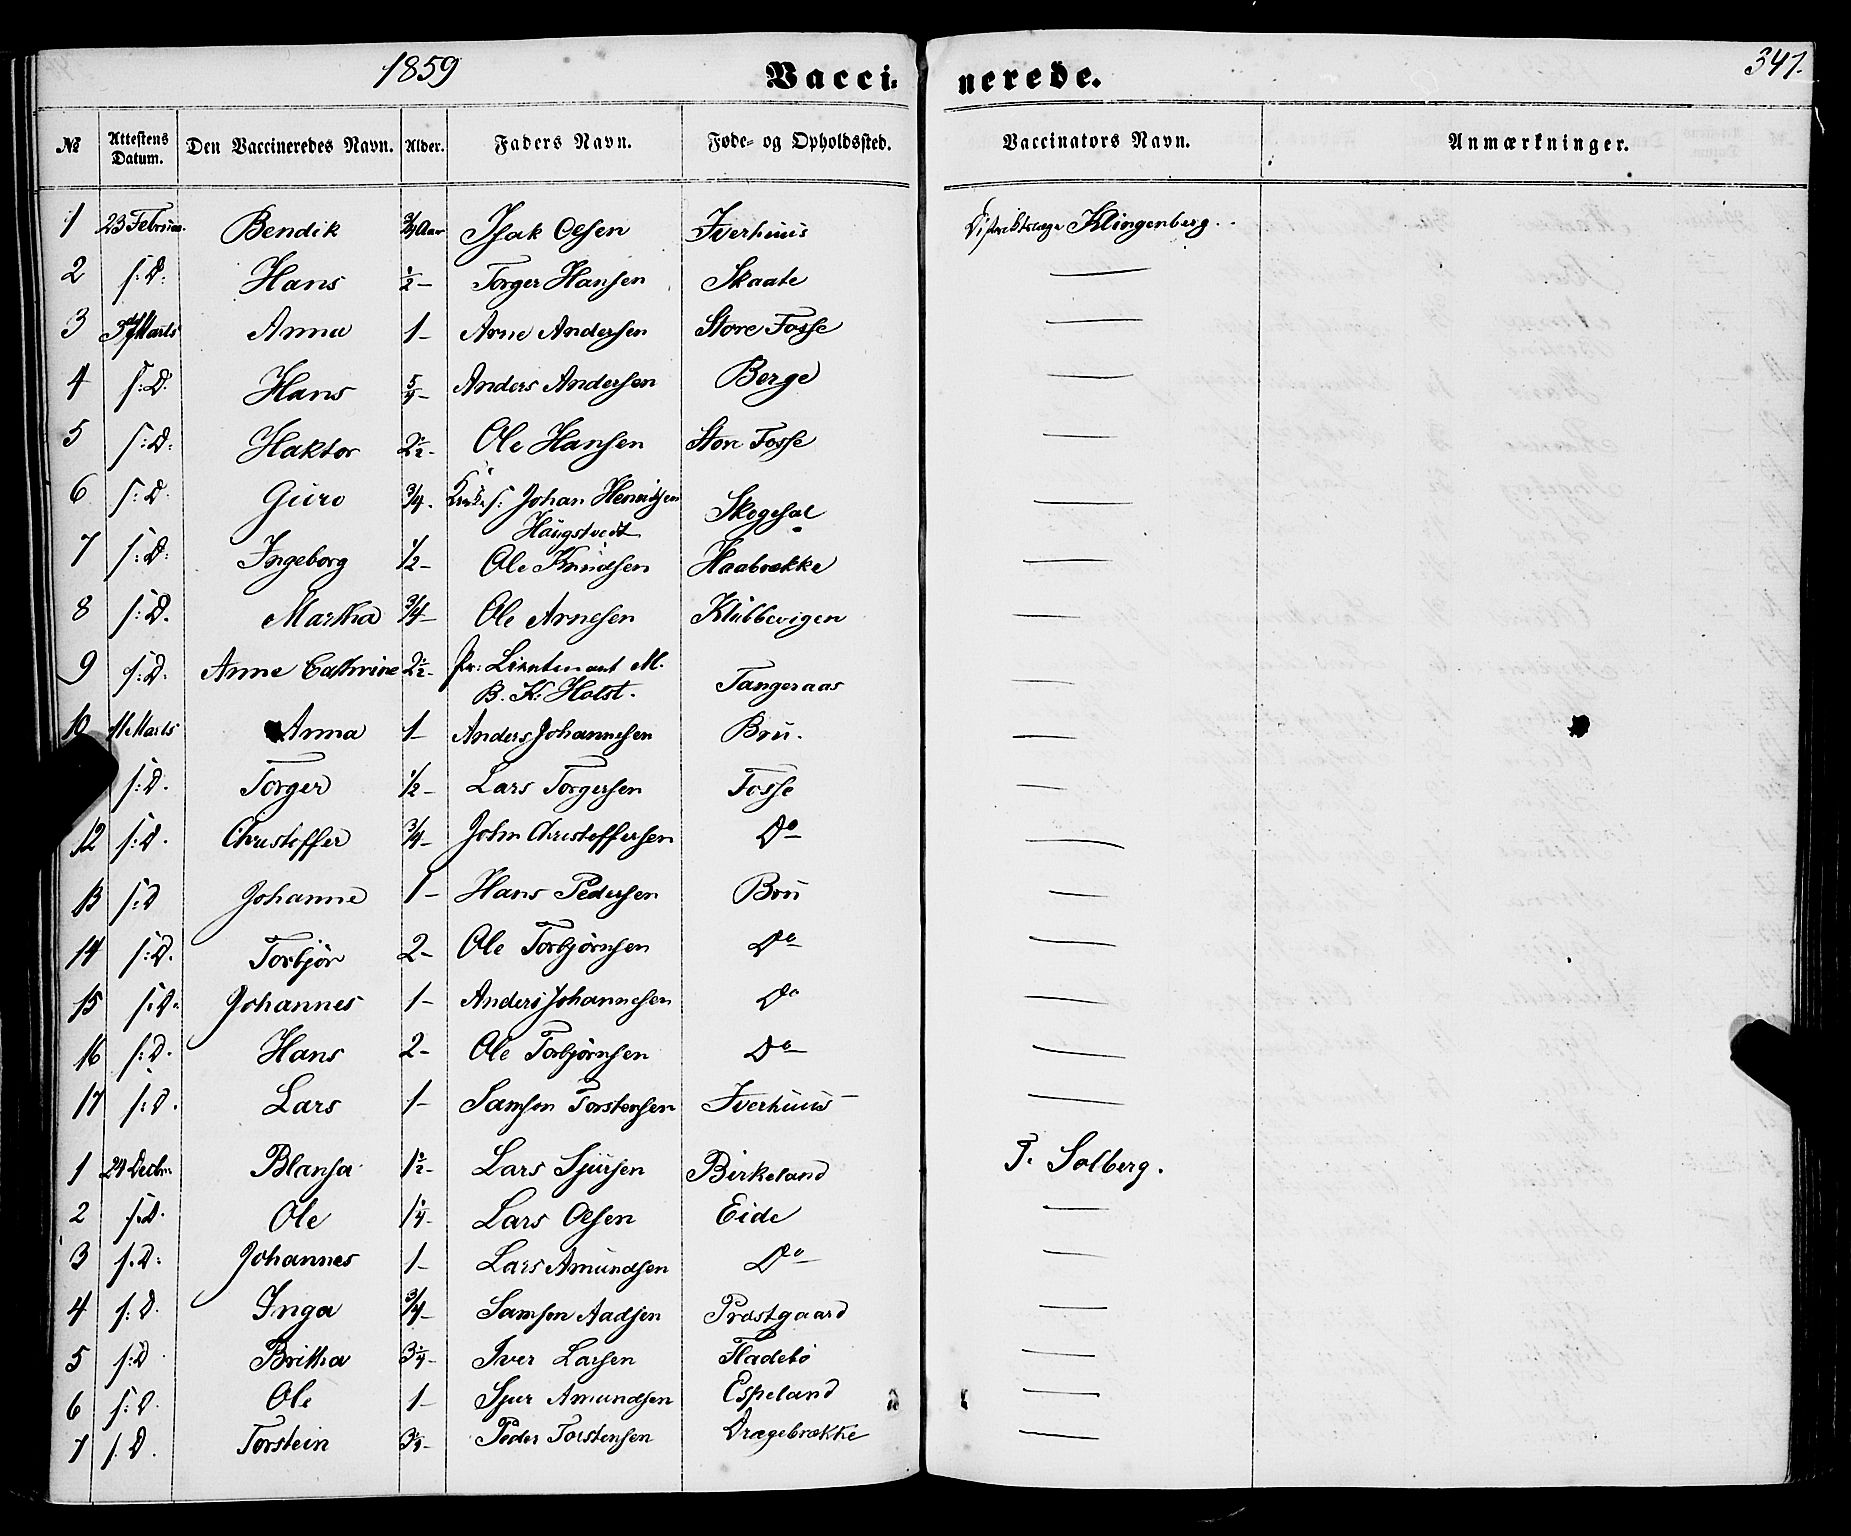 1859 Vacci- nerede. 347.
№ Attestens Datum. Den Vaccineredes Navn. Alder. Faders Navn. Føde- og Opholdssted. Vaccinators Navn. Anmærkninger.
1 23 Februar. Bendik 3/4 Aar Isak Oesen Iverhuus Distriktslæge Klingenberg.
2 s: D: Hans 1/2 – Torger Hansen Skaate —
3 3die Marts Anna 1 – Arne Andersen Store Fosse —
4 s: D. Hans 5/4 – Anders Andersen Berge —
5 s: D: Haktor 2 1/2 - Ole Hansen Store Fosse —
6 s: D. Guro 3/4. s: Johan Henriksen Skogesal —
Haugstvedt
7 s: D: Ingeborg 1/2 – Ole Knudsen Haabrække —
8 s: D. Martha 3/4 – Ole Arnesen Klubbevigen —
9 s: D. Anne Cathrine 2 1/2 - pr: Lieutenant M. Tangeraas —
B. K. Holst.
10 11 Marts Anna 1 – Anders Johannesen Bru. —
s: D. Torger 1/2 – Lars Torgersen Fosse —
12 s: D. Christoffer 3/4 – John Christoffersen Do —
13 s: D Johanne 1 – Hans Pedersen Bru —
14 s: D. Torbjör 2 – Ole Torbjørnsen Do —
15 s: D. Johannes 1 – Anders Johannesen Do —
16 s: D. Hans 2 - Ole Torbjørnsen Do —
17 s: D. Lars 1 – Samson Torstensen Iverhuus —
1 24 Decbr. Blansa 1 1/2 - Lars Sjursen Birkeland T. Solberg.
2 s: D. Ole 1 1/4 - Lars Oesen Eide —
3 s. D: Johannes 1 – Lars Amundsen Do —
4 s: D. Inga 3/4 – Samson Aadsen Præstgaard —
5 s: D Brittha 3 1/4 – Iver Larsen Fladebö —
6 s: D. Ole 1 – Sjur Amundsen Espeland —
7 s. D. Torstein 3/4 - Peder Torstensen Drægebrække —